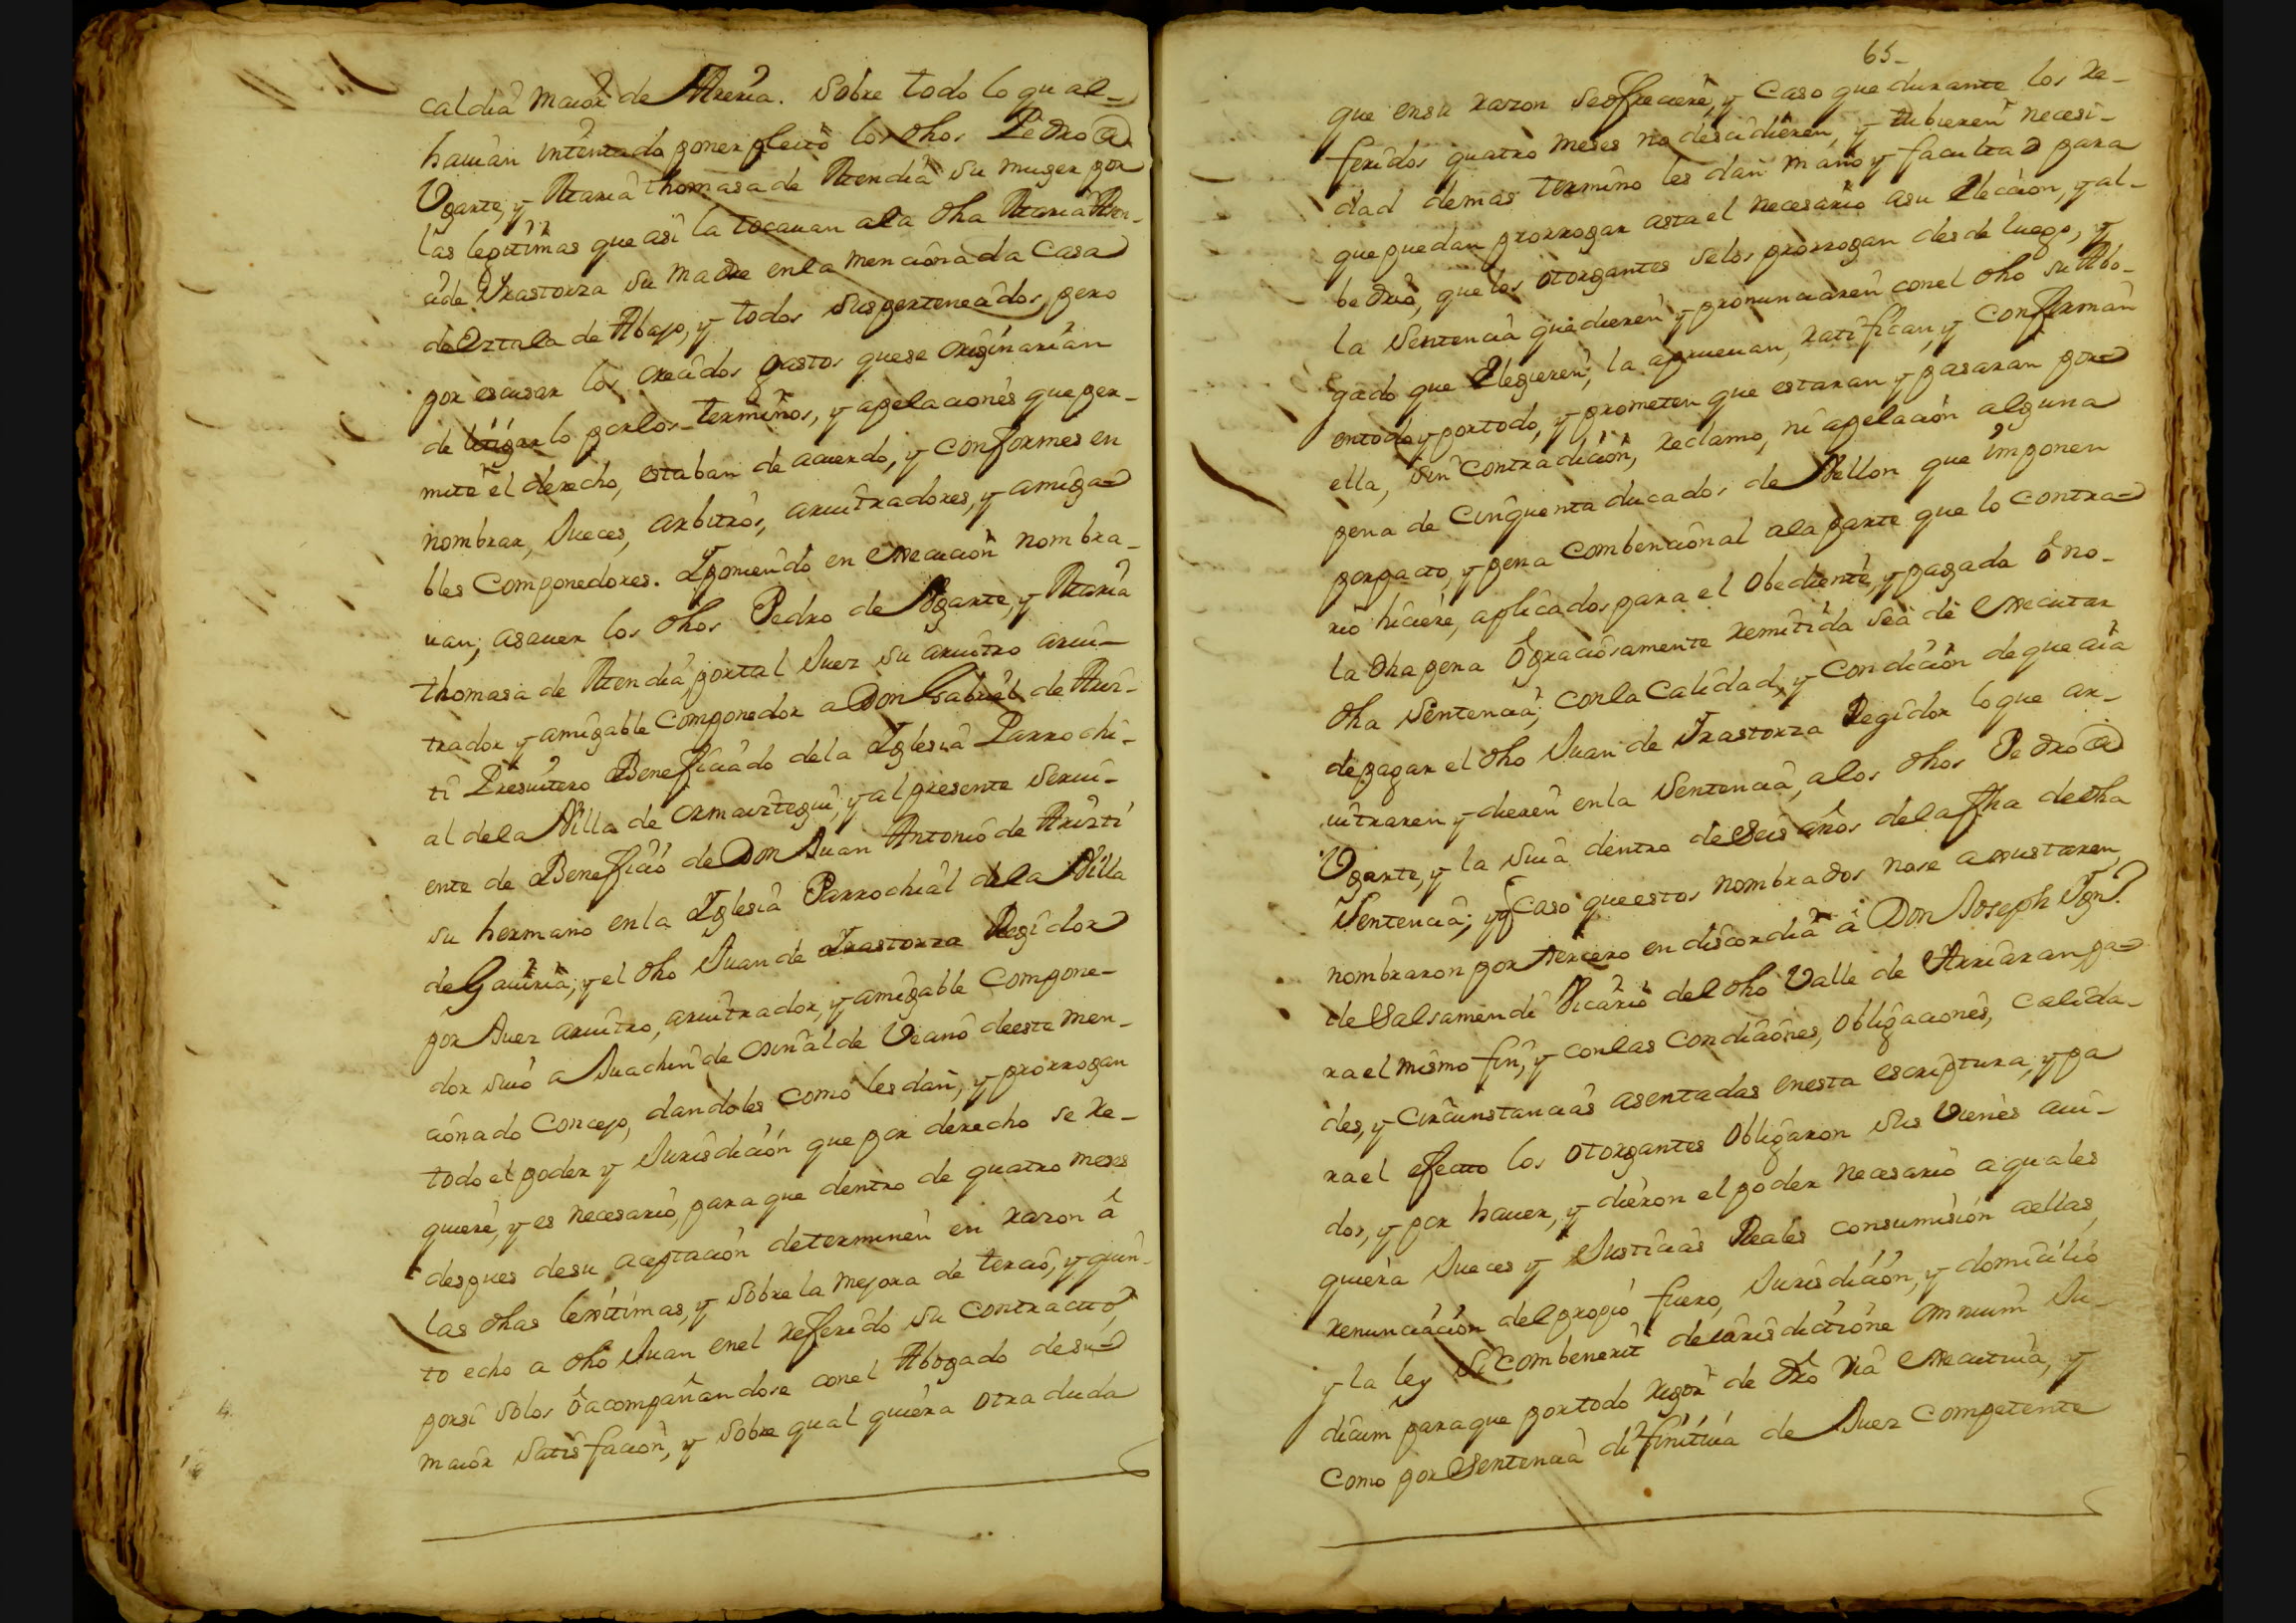 caldia maior de Areria. Sobre todo lo qual
hauian intentado poner pleito los dhos Pedro de
Vgarte, y Maria thomasa de Mendia su muger por
las legitimas que asi la tocauan a la dha Maria Men-
a de Yrastorza su madre en la mencionada Casa
de Oztala de Abajo, y todos sus pertenecidos, pero
por escusar los crecidos gastos que se originarian
de litigarlo por los terminos, y apelaciones que per-
mite el derecho, estaban de acuerdo, y conformes en
nombrar, Jueces, arbitros, aruitradores, y amiga-
bles Componedores. Y poniendo en execucion nombra-
uan; asauer los dhos Pedro de Vgarte, y Maria
thomasa de Mendia, por tal Juez su aruitro arui-
trador y amigable Componedor a Don Gabriel de Aris-
ti Presuitero Beneficiado de la Yglesia Parrochi-
al de la Villa de Ormaiztegui, y al presente serui-
ente de Beneficio de Don Juan Antonio de Aristi
su hermano en la Yglesia Parrochial de la Villa
de Gauiria; y el dho Juan de Yrastorza Regidor
por Juez aruitro, aruitrador, y amigable Compone-
dor suio a Juachin de Osinalde Vecino de este men-
cionado Concejo, dandoles como les dan, y prorrogan
todo el poder y Jurisdicion que por derecho se re-
quiere, y es necesario, para que dentro de quatro meses
despues de su aceptacion determinen en razon â
las dhas lexitimas, y sobre la mejora de tercio, y quin-
to echo a dho Juan en el referido su contracto,
por si solos ô acompañandose con el Abogado de su
maior satisfacion, y sobre qual quiera otra duda
65-
que en su razon se ofreciere, y Caso que durante los re-
feridos quatro meses no descidieren, y tubieren necesi-
dad de mas termino les dan mano y facultad para
que puedan prorrogar asta el necesario a su eleccion, y al-
bedrio, que los otorgantes se los prorrogan desde luego, y
la Sentencia que dieren y pronunciaren con el dho su Abo-
gado que elegieren; la aprueuan, ratifican, y confirman
en todo y por todo, y prometen que estaran y pasaran por
ella, sin contradicion, reclamo, ni apelacion alguna
pena de Cinquenta ducados de Vellon que imponen
por pacto, y pena combencional a la parte que lo contra-
rio hiciere, aplicados para el obediente, y pagada ô no-
la dha pena ô graciosamente remitida sea de executar
dha Sentencia; con la Calidad, y Condicion de que aia
de pagar el dho Juan de Yrastorza Regidor lo que ar-
uitraren y dieren en la Sentencia, a los dhos Pedro de
Vgarte, y la suia dentro de seis años de la fha de dha
Sentencia; y Caso que estos nombrados no se ajustaren,
nombraron por tercero en discordia â Don Joseph Ygn.º
de Salsamendi Vicario del dho Valle de Arriaran pa-
ra el mismo fin, y con las Condiciones, obligaciones, calida-
des, y circunstancias asentadas en esta escriptura, y pa
ra el efecto los otorgantes obligaron sus vienes aui-
dos, y por hauer, y dieron el poder necesario a quales
quiera Jueces y Justicias Reales con sumision a ellas,
renunciacion del propio fuero, Jurisdicion, y domicilio
y la ley si combenerit de iurisdictione omnium Ju-
dicum para que por todo rigor de dro via executiua, y
como por Sentencia difinitiua de Juez Competente